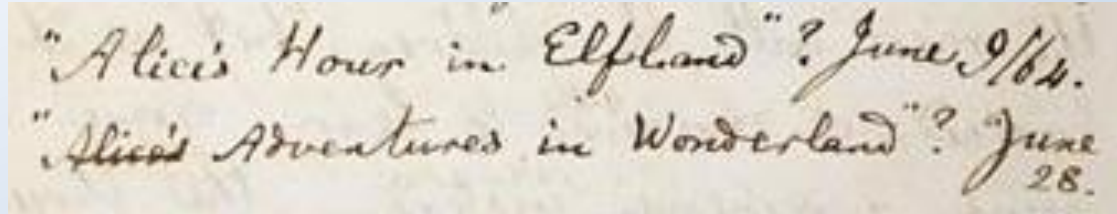 "Alice's Hour in Elfland"? June 9/64.
"Alice's Adventures in Wonderland"? June
28.